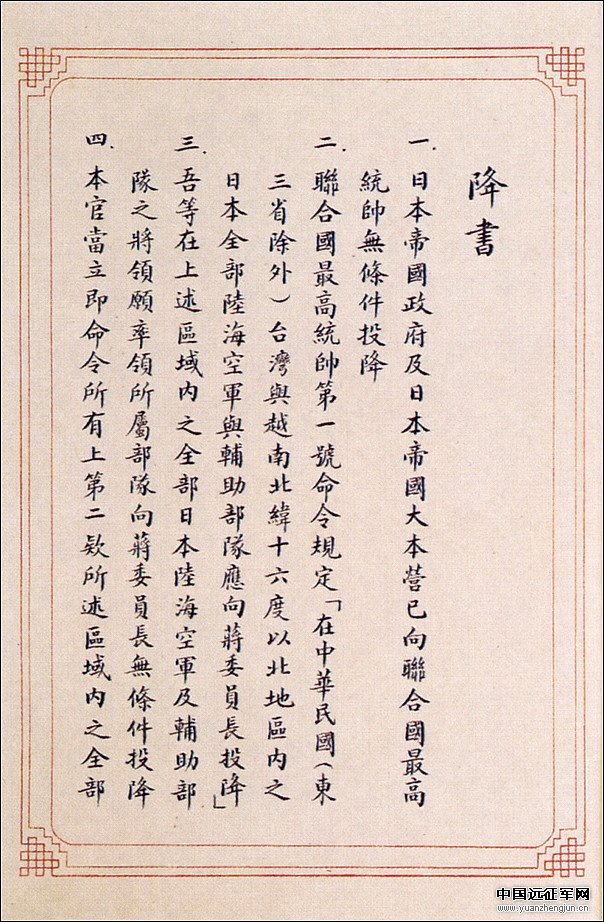 降書
一. 日本帝國政府及日本帝國大本營已向聯合國最高
統帥無條件投降
二. 聯合國最高統帥第一號命令規定「在中華民國(東
三省除外)台灣與越南北緯十六度以北地區內之
日本全部陸海空軍與輔助部隊應向蔣委員長投降」
三. 吾等在上述區域內之全部日本陸海空軍及輔助部
隊之將領願率領所屬部隊向蔣委員長無條件投降
四. 本官當立即命令所有上第二款所述區域內之全部
中国远征军网
www.yuanzhengjun.cn